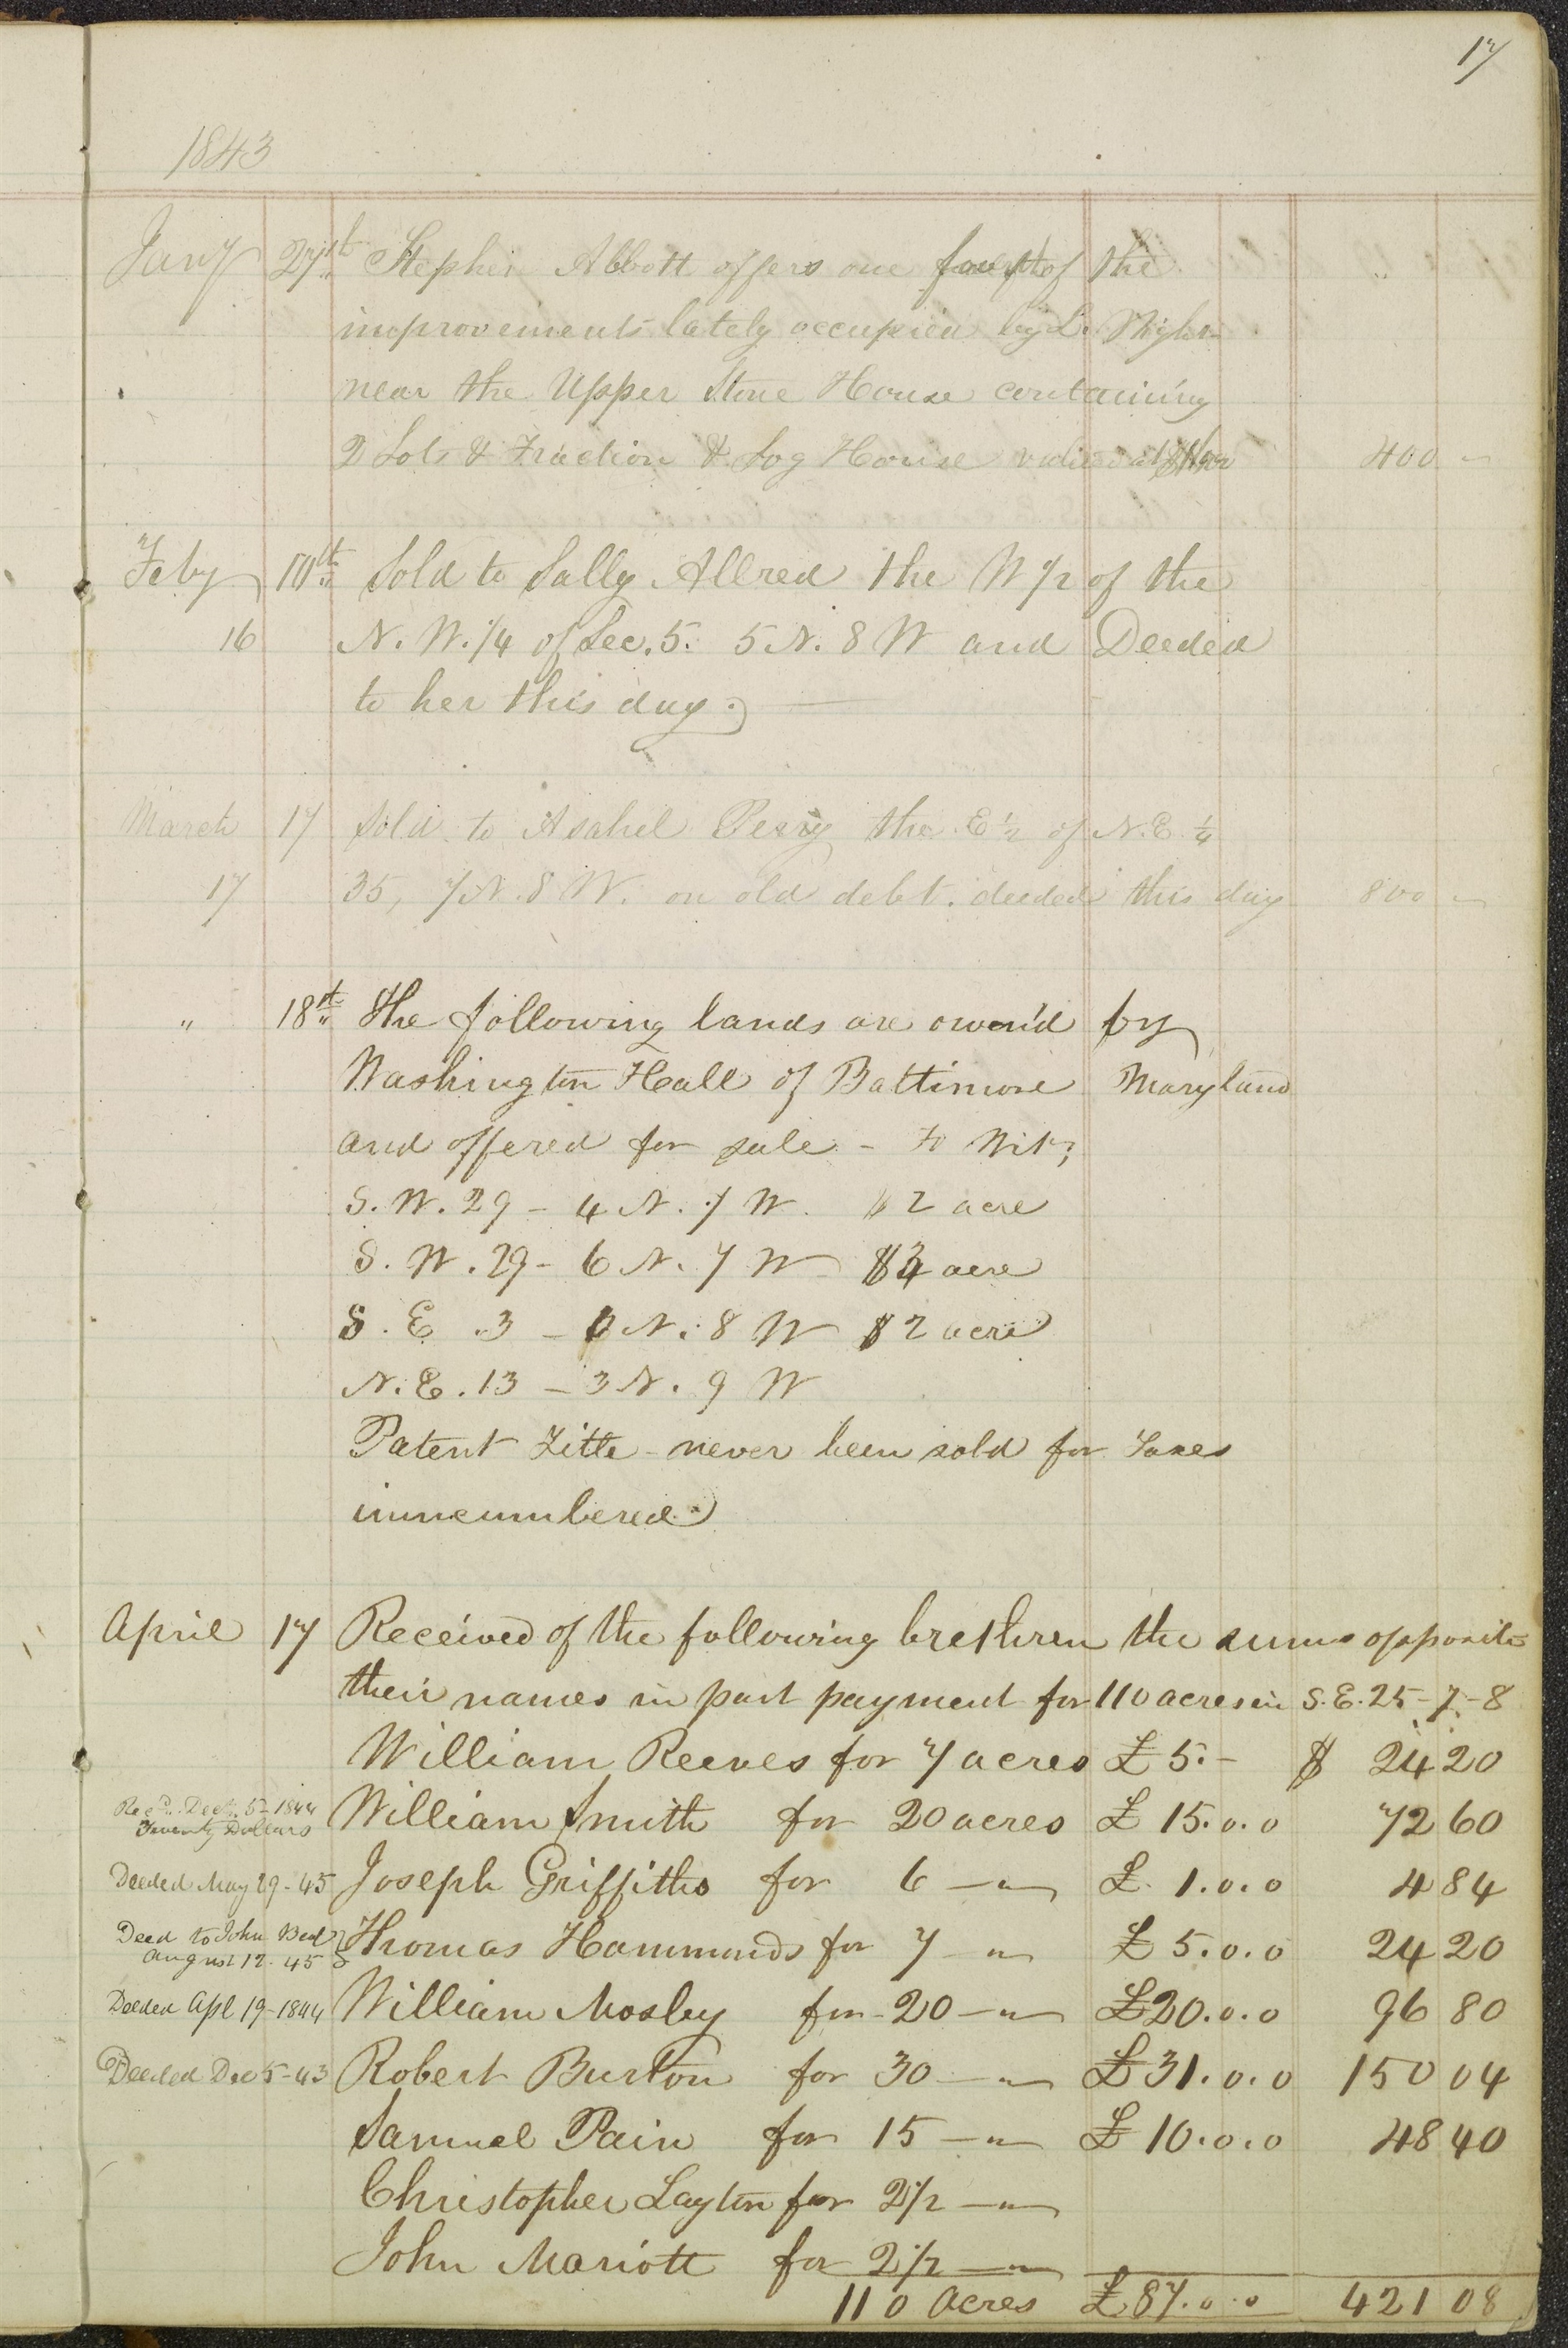 17
1843
Jany 27th Stephen Abbott offers one fourth of the
improvements lately occupied by L.
near the Upper Stone House containing
2 Lots & Fraction & Log House valued at 400 -
Feby 10th Sold to Sally Allred the W 1/2 of the
16 N. W. 1/4 of Sec. 5. 5 N. 8 W and Deeded
to her this day.
March 17 Sold to Asahel Perry the E 1/2 of N. E. 1/4
17 35, 7 N. 8 W. on old debt. deeded this day 800 -
" 18th The following lands are owen'd by
Washington Hall of Baltimore Maryland
and offered for sale - to Wit;
S. W. 29 - 4 N. 7 W. $2 acre
S. W. 29 - 6 N. 7 W acre
S. E. 3 - 6 N. 8 W $2 acre
N. E. 13 - 3 N. 9 W
Patent Title - never been sold for Taxes
inincumbered.
April 17 Received of the following brethren the sums opposite
their names in part payment for 110 acres in S. E. 25 - 7 - 8
William Reeves for 7 acres £ 5. - $ 24 20
Recd. Dec. 5 - 1844
Twenty Dollars
William Smith for 20 acres £ 15. 0. 0 72 60
Deeded May 29 - 45 Joseph Griffiths for 6 - " - £ 1. 0. 0 4 84
Deed to John Beal
August 12. 45
Thomas Hammonds for 7 - " £ 5. 0. 0 24 20
Deeded Apl 19 - 1844 William Mosley for - 20 - " - £ 20. 0. 0 96 80
Deeded Dec 5 - 43 Robert Burton for 30 - " - £ 31. 0. 0 150 04
Samuel Pain for 15 - " - £ 10. 0. 0 48 40
Christopher Layton for 2 1/2 - " -
John Mariott for 2 1/2 - " -
110 Acres £ 87. 0. 0 421 08